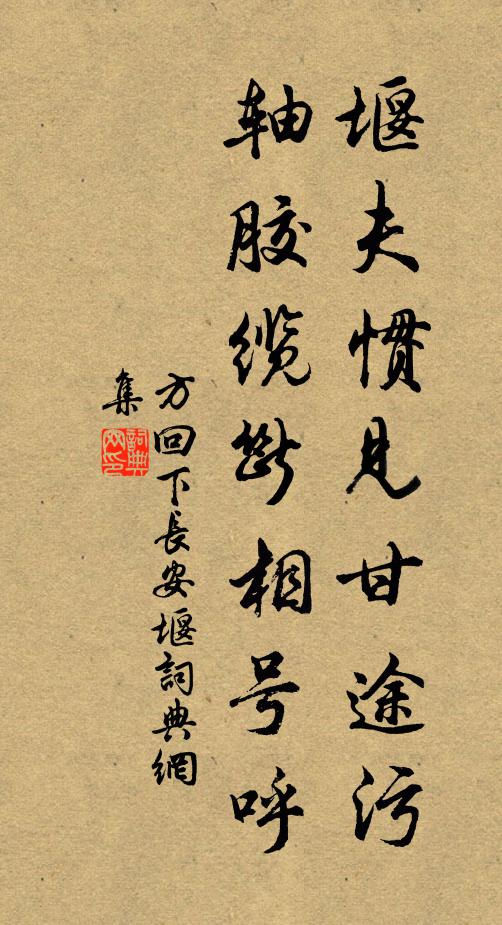 堰夫惯见甘途污
轴胶缆断相号呼
方回下長安堰詞典網
集
詞典網印